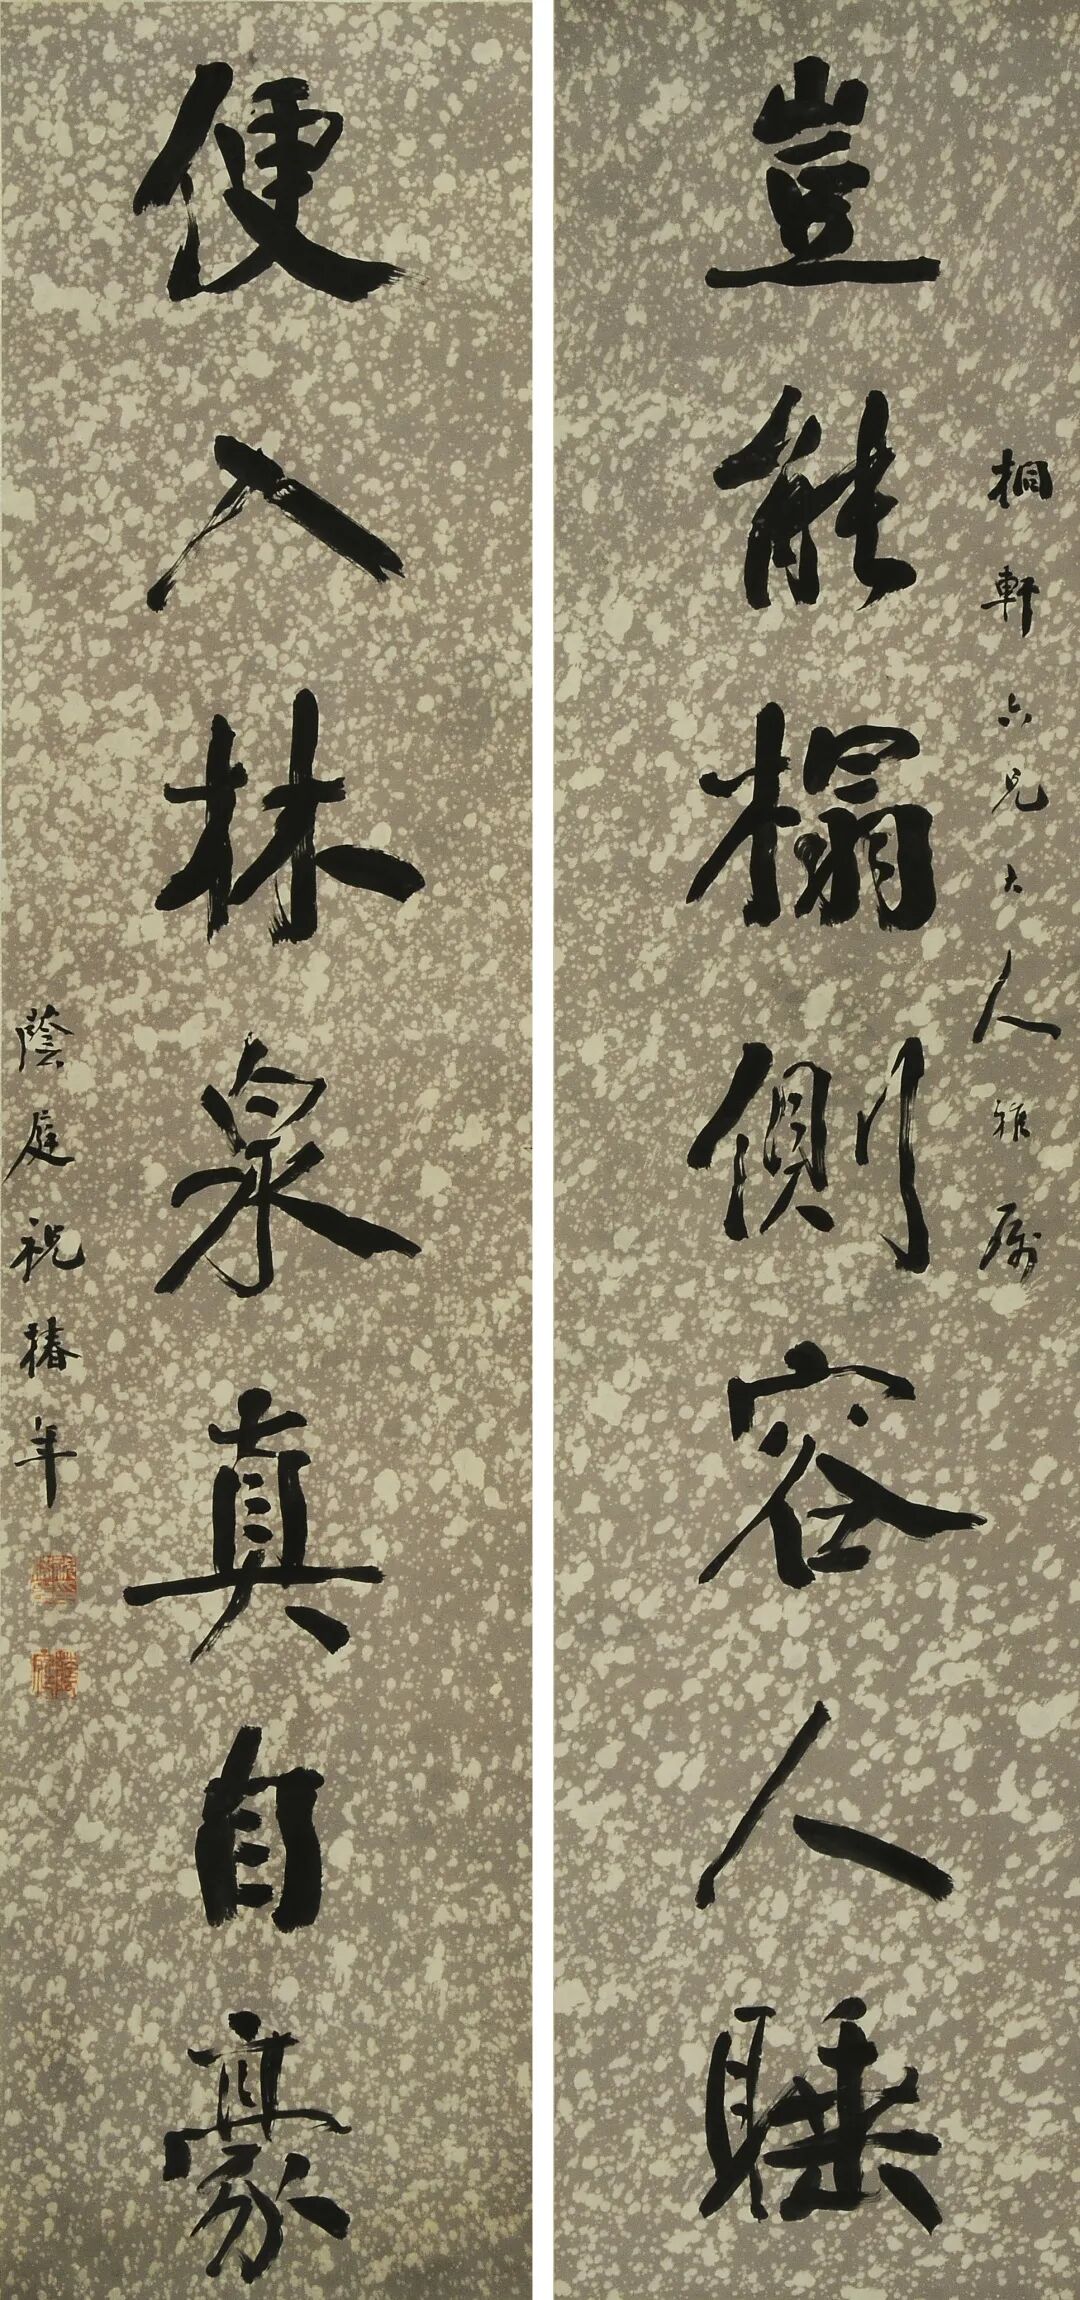 桐軒六兄大人雅屬
豈能榻側容人睡
便入林泉真自豪
蔭庭祝椿年